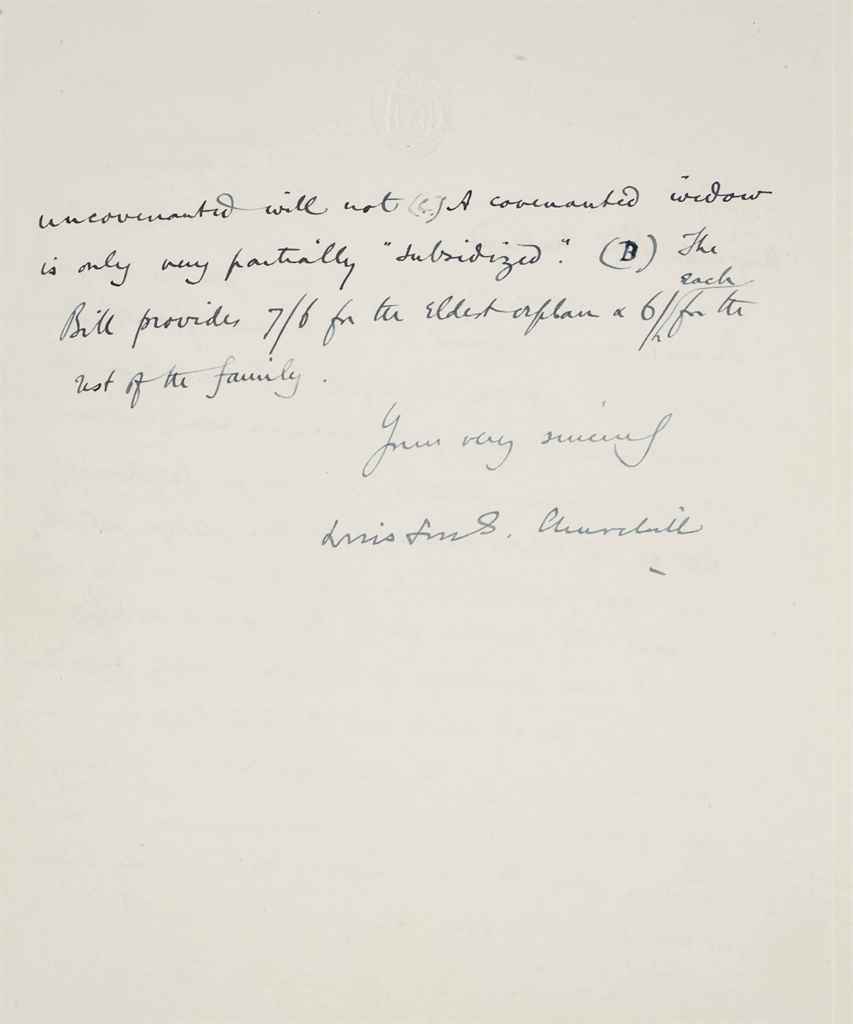 uncovenanted will not (C.) A covenanted widow
is only very partially "subsidized". (D) The
Bill provides 7/6 for the Eldest orphan & 6/ each for the
rest of the family.
Yours very sincerely
Winston S. Churchill